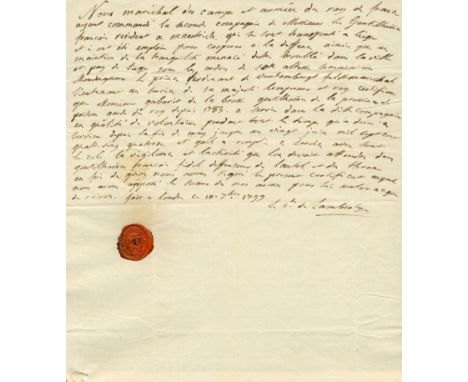 Nous maréchal des camps et armées du roy de france
ayant commandé la seconde compagnie de Messieurs les Gentilhommes
françois résidant a maestrich, qui se sont transportés a liege
et i ont été emploiés pour cooperer a la deffense ainsi que au
maintien de la tranquilité menacé de trouble dans la ville
et pays de liege sous les ordres de son altesse
Monseigneur le prince ferdinant de Wurtemberg feld marechal
lieutenant au service de sa majesté l'empereur et roy, certifions
que Monsieur de la gentilhomme de la province de
poitou garde du roy depuis 1783 a servi dans la ditte compagnie
en qualité de volontaire pendant tout le temps qu'a duré le
service depuis la fin de may jusqu'au vingt juin mil sept cent
quatre vingt quatorze, et qu'il a rempli ce service avec tout
le zele, la vigilance et l'exactitude que l'on devoit attendre d'un
gentilhomme francois fidel deffenseur de l'autel et du throne
en foi de quoi nous avons signé le present certificat auquel
nous avons apposé le sceau de nos armes pour lui valoir ce que
de raison. fait a londre ce 10 7bre 1799
le Cte de Lambertye